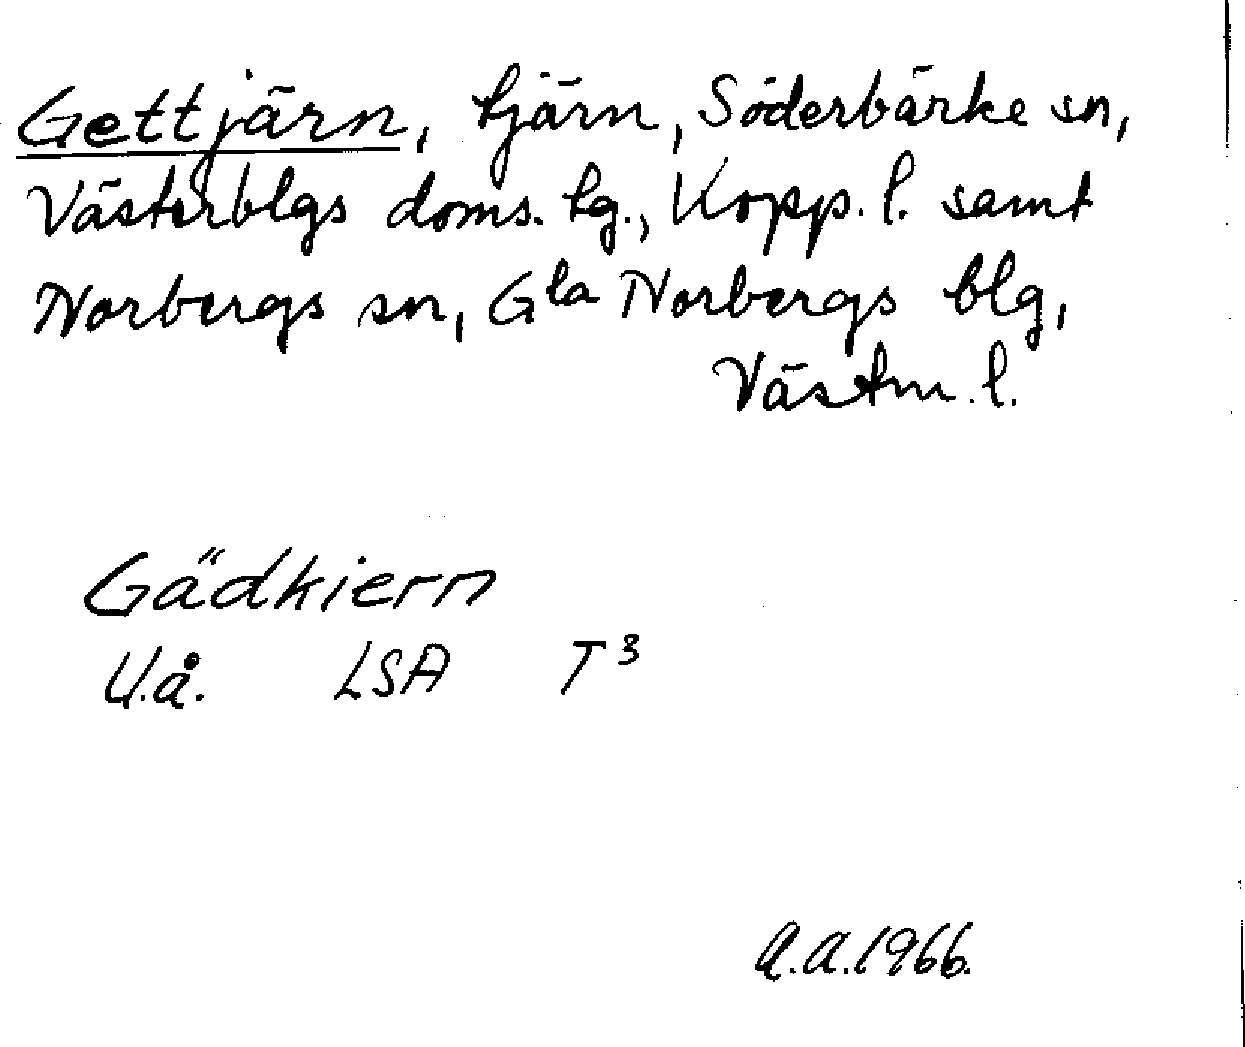 Gettjärn, tjärn, Söderbärke sn,
Västerblgs doms. tg., Kopp. l. samt
Norbergs sn, Gla Norbergs blg,
Västm. l.
Gädkiern
U.å. LSA T3
A.A.1966.